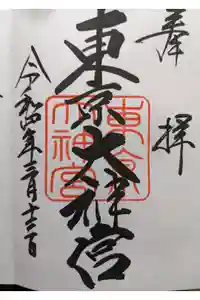 奉拝
東京大神宮
東京
大神宮
令和四年十二月十三日